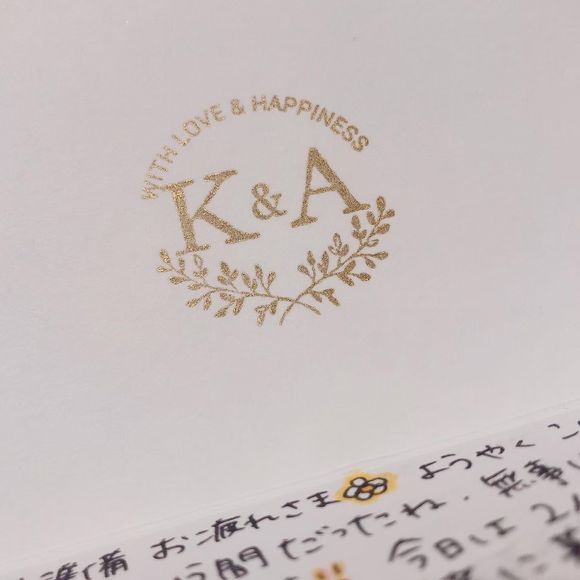 WITH LOVE & HAPPINESS
K & A
準備 お疲れさま ようやく
間だったね. 無事
今日は 2人